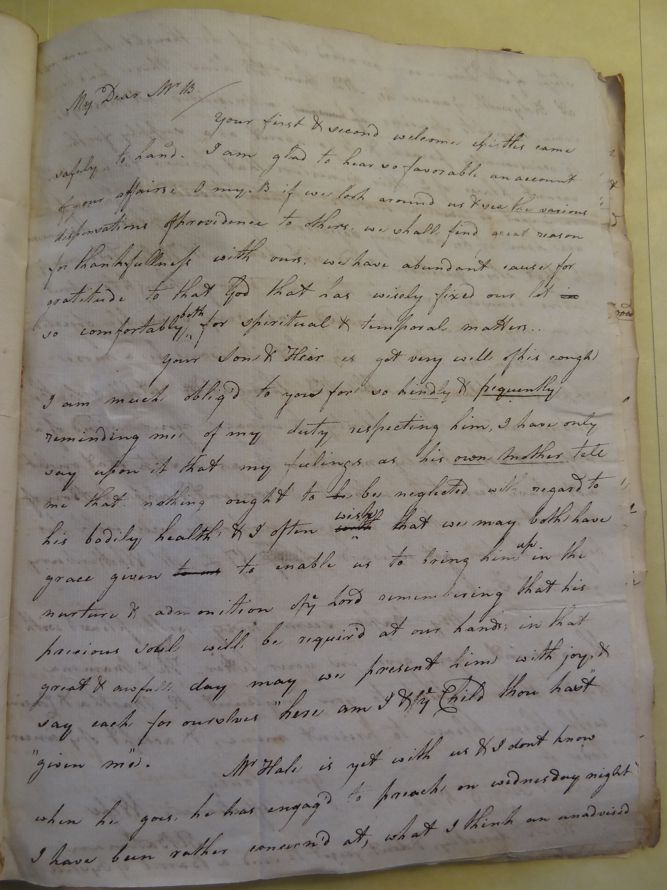 My Dear Mr B.
Your first & second welcome epistles came
safely to hand. I am glad to hear so favorable an account
of your affairs. O my B if we look around us & see the various
dispensations of providence to others, we shall find great reason
for thankfullness with ours, we have abundant cause for
gratitude to that God that has wisely fixed our lot in
so comfortably both for spiritual & temporal matters..
Your Son & Heir is got very well of his cough
I am much oblig'd to you for so kindly & frequently
reminding me of my duty respecting him, I have only
say upon it that my feelings as his own Mother tell
me that nothing ought to be be neglected with regard to
his bodily health, & I often wish that we may both have
grace given to us to enable us to bring him up in the
nurture & admonition of ye Lord remembering that his
precious soul will be requir'd at our hands; in that
great & awfull day may we present him with joy, &
say each for ourselves "here am I & ye Child thou hast"
"given me".
Mr Hale is yet with us & I dont know
when he goes, he has engag'd to preach on wednesday night
I have been rather concern'd at, what I think an unadvised